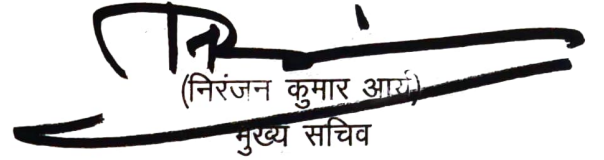 (निरंजन कुमार आर्य)
मुख्य सचिव